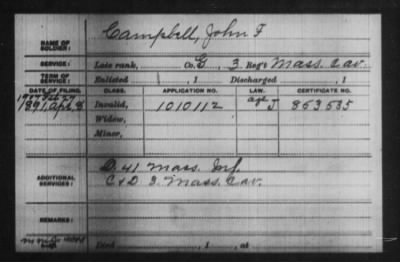 NAME OF SOLDIER: Campbell, John F
SERVICE: Late rank, Co. G, 3. Reg't Mass. Cav.
TERM OF SERVICE: Enlisted , 1 Discharged , 1
DATE OF FILING. CLASS. APPLICATION NO. LAW. CERTIFICATE NO.
1907 Feb 27 age
1891, Apl, 8 Invalid, 1010112 J 853535
Widow,
Minor,
ADDITIONAL SERVICES: D. 41 Mass. Inf.
C & D 3. Mass. Cav.
REMARKS:
Died , 1 , at